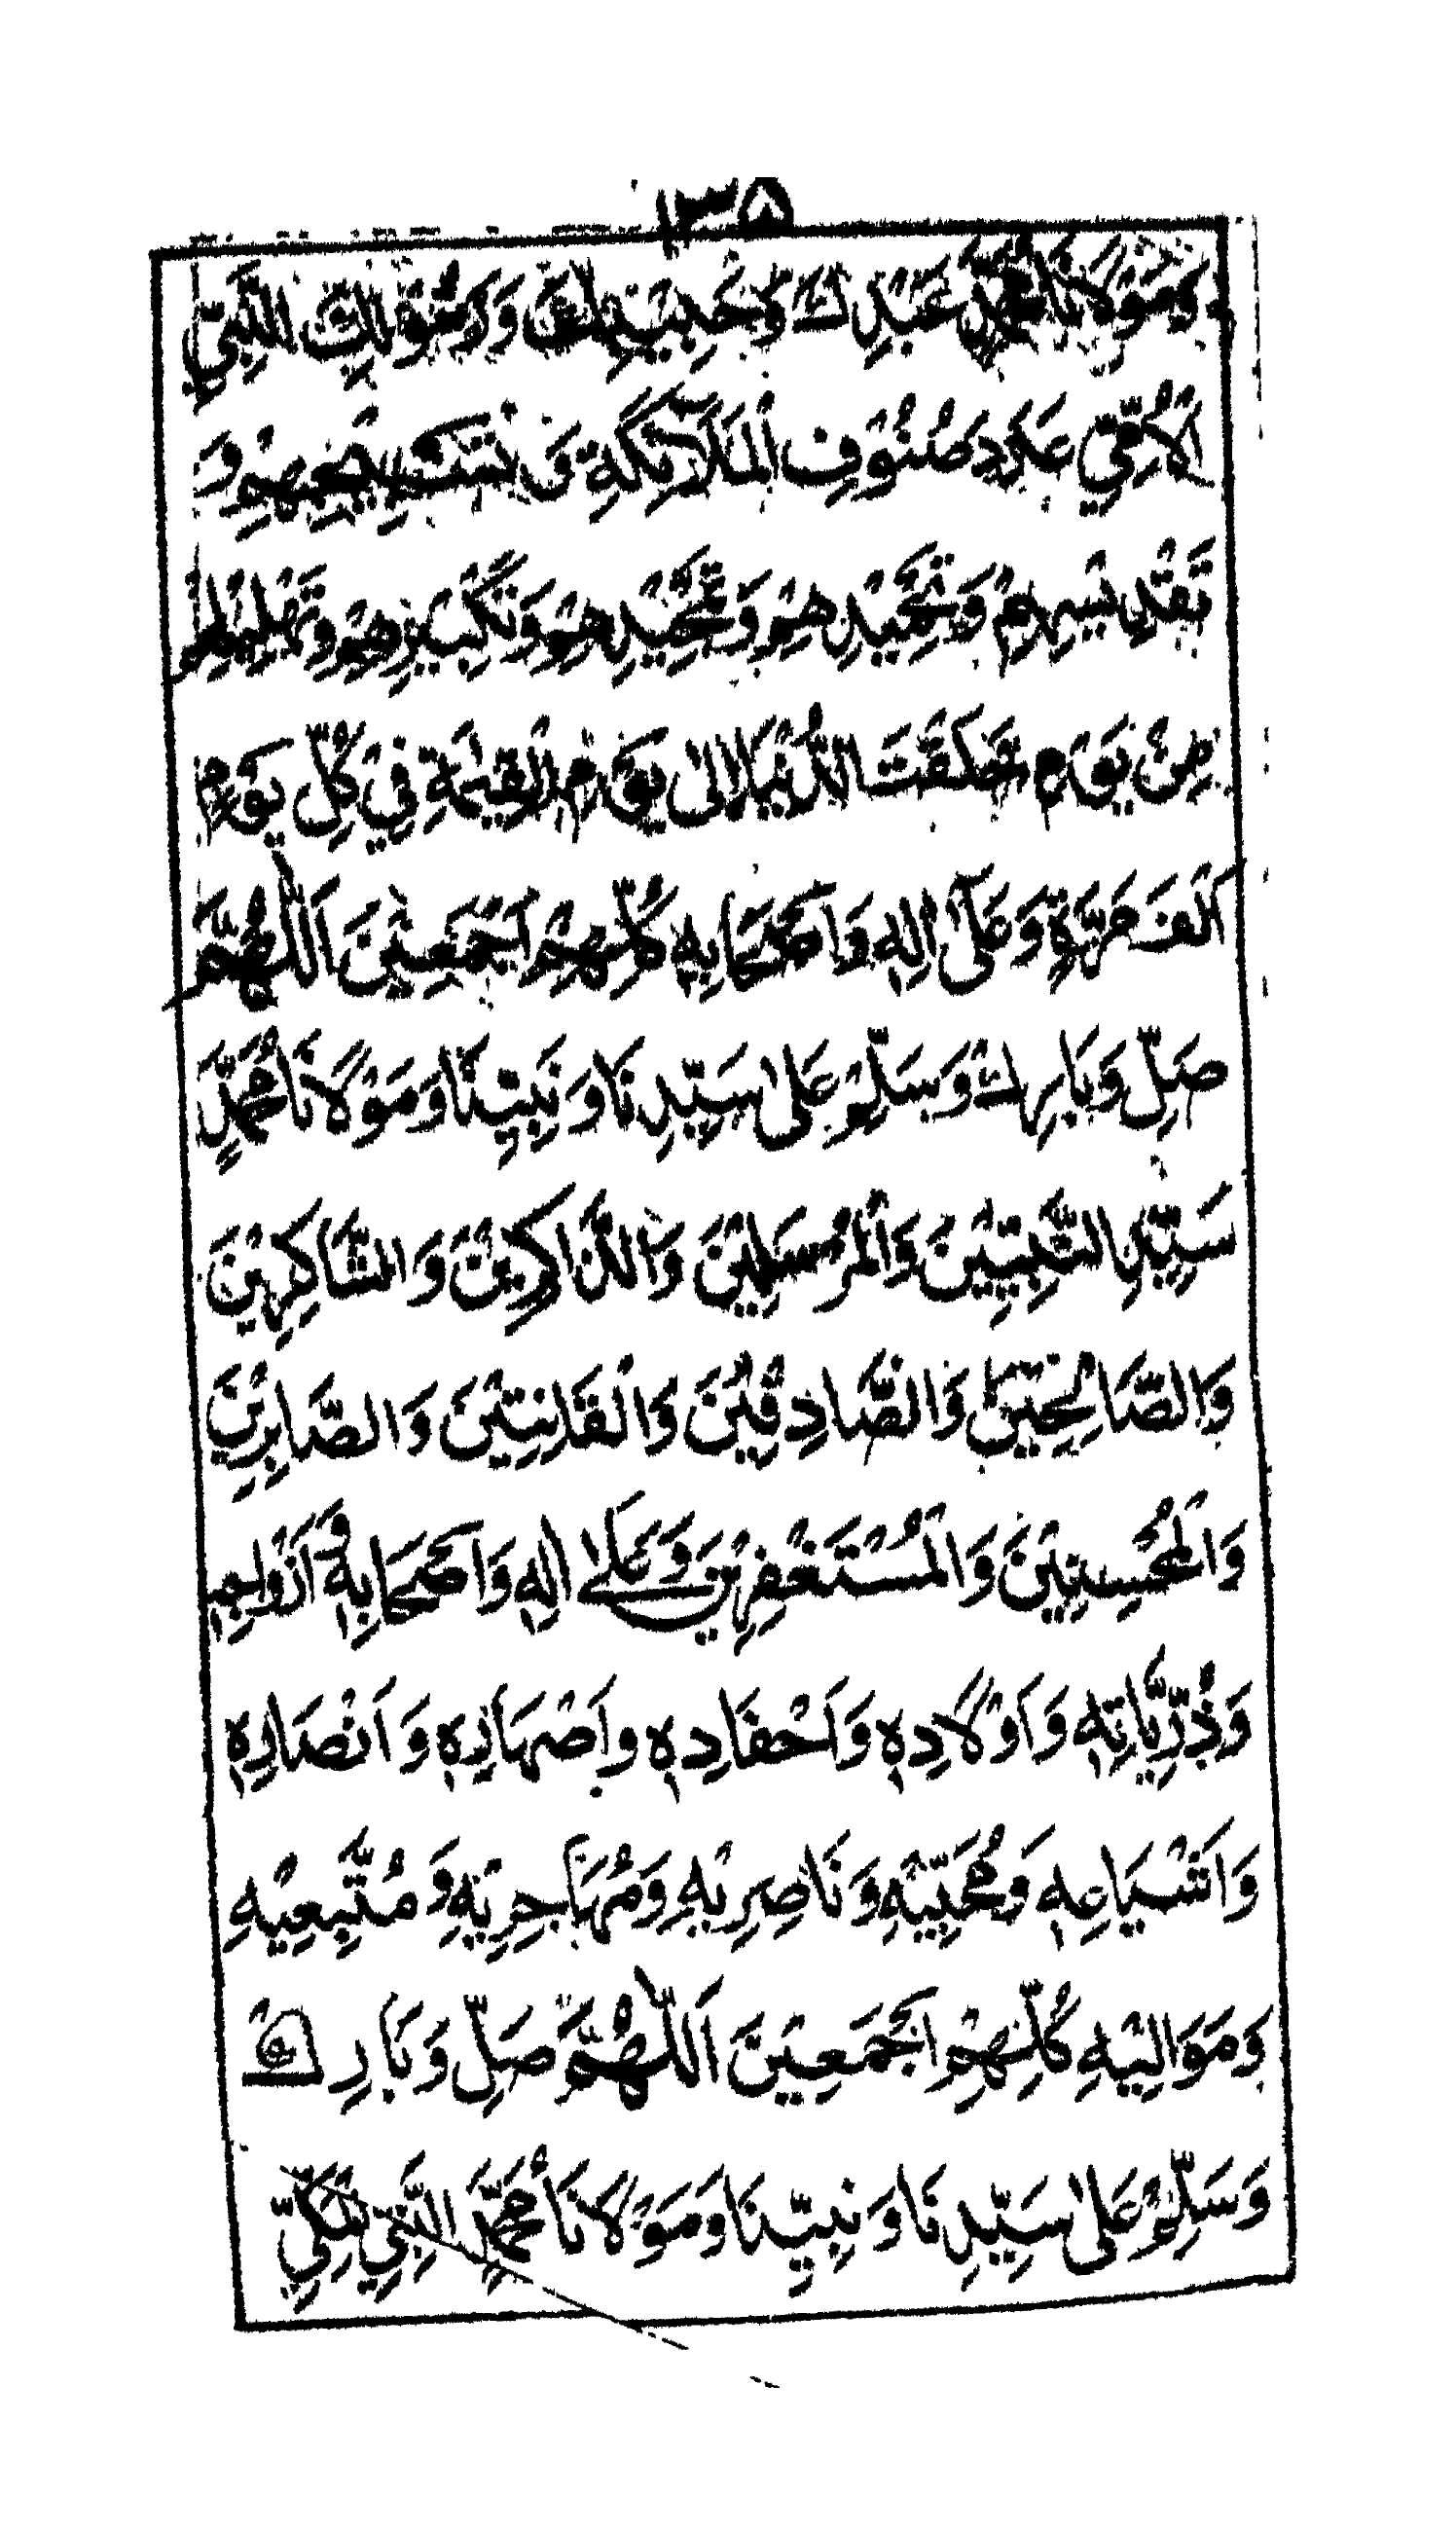 ١٣٥
وَمَوْلَانَا مُحَمَّدٍ عَبْدِكَ وَحَبِيْبِكَ وَرَسُوْلِكَ النَّبِيِّ
الْاُمِّيِّ عَدَدَ صُفُوْفِ الْمَلَآئِكَةِ وَتَسْبِيْحِهِمْ وَ
تَقْدِيْسِهِمْ وَتَحْمِيْدِهِمْ وَتَمْجِيْدِهِمْ وَتَكْبِيْرِهِمْ وَتَهْلِيْلِهِمْ
مِنْ يَوْمِ خَلَقْتَ الدُّنْيَا اِلٰى يَوْمِ الْقِيٰمَةِ فِيْ كُلِّ يَوْمٍ
اَلْفَ مَرَّةٍ وَعَلٰٓى اٰلِهٖ وَاَصْحَابِهٖ كُلِّهِمْ اَجْمَعِيْنَ اَللّٰهُمَّ
صَلِّ وَبَارِكْ وَسَلِّمْ عَلٰى سَيِّدِنَا وَنَبِيِّنَا وَمَوْلَانَا مُحَمَّدٍ
سَيِّدِ النَّبِيِّيْنَ وَالْمُرْسَلِيْنَ وَالذَّاكِرِيْنَ وَالشَّاكِرِيْنَ
وَالصَّالِحِيْنَ وَالصَّادِقِيْنَ وَالْقَانِتِيْنَ وَالصَّابِرِيْنَ
وَالْمُحْسِنِيْنَ وَالْمُسْتَغْفِرِيْنَ وَعَلٰى اٰلِهٖ وَاَصْحَابِهٖ وَاَزْوَاجِهٖ
وَذُرِّيَّاتِهٖ وَاَوْلَادِهٖ وَاَحْفَادِهٖ وَاَصْهَارِهٖ وَاَنْصَارِهٖ
وَاَشْيَاعِهٖ وَمُحِبِّيْهِ وَنَاصِرِيْهِ وَمُهَاجِرِيْهِ وَمُتَّبِعِيْهِ
وَمَوَالِيْهِ كُلِّهِمْ اَجْمَعِيْنَ اَللّٰهُمَّ صَلِّ وَبَارِكْ
وَسَلِّمْ عَلٰى سَيِّدِنَا وَنَبِيِّنَا وَمَوْلَانَا مُحَمَّدٍ النَّبِيِّ الْمَكِّيِّ